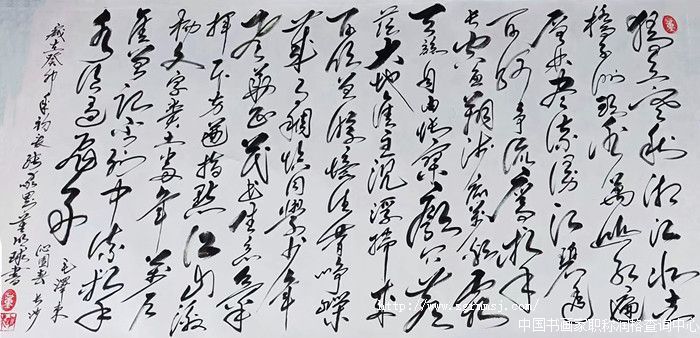 独立寒秋湘江北去
橘子洲头看万山红遍
层林尽染漫江碧透
百舸争流鹰击
长空鱼翔浅底万类霜
天竞自由怅寥廓问苍
茫大地谁主沉浮携来
百侣曾游忆往昔峥嵘
岁月稠恰同学少年
风华正茂书生意气
挥斥方遒指点江山激
扬文字粪土当年万户
侯曾记否到中流击水
浪遏飞舟
毛澤东
沁园春长沙
岁在癸卯年初夏
书
中国书画家职称润格查询中心